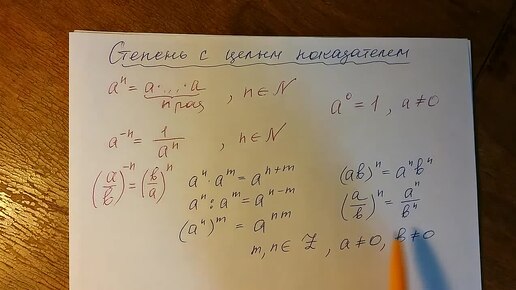 Степень с целым показателем
aⁿ = a·...·a , n ∈ N
n раз
a⁰ = 1 , a ≠ 0
a⁻ⁿ = 1/aⁿ , n ∈ N
(a/b)⁻ⁿ = (b/a)ⁿ
aⁿ · aᵐ = aⁿ⁺ᵐ
aⁿ : aᵐ = aⁿ⁻ᵐ
(aⁿ)ᵐ = aⁿᵐ
(ab)ⁿ = aⁿbⁿ
(a/b)ⁿ = aⁿ/bⁿ
m, n ∈ Z , a ≠ 0, b ≠ 0